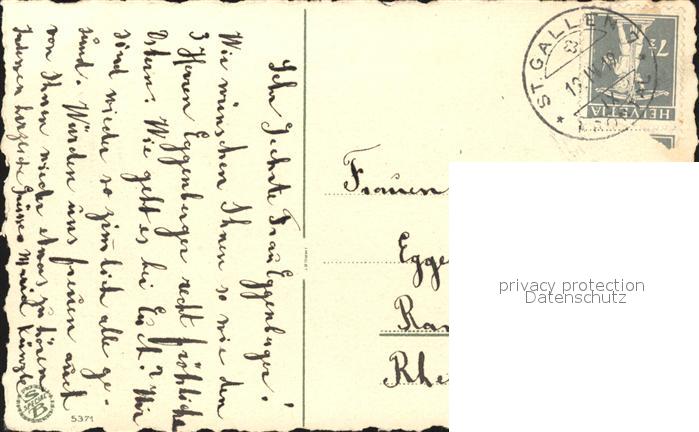 Sehr Geehrte Frau Eggenberger!
Wir wünschen Ihnen so wie den
3 Herren Eggenberger recht fröhliche
Ostern. Wie geht es bei Euch? Wir
sind wieder so zimlich alle ge-
sund. Würden uns freuen auch
von Ihnen wieder etwas zu hören
Indessen herzliche Grüsse Maria Künzle
ST. GALLEN
HELVETIA
7½
Frauen
Egge
Ran
Rhe
privacy protection
Datenschutz
5371